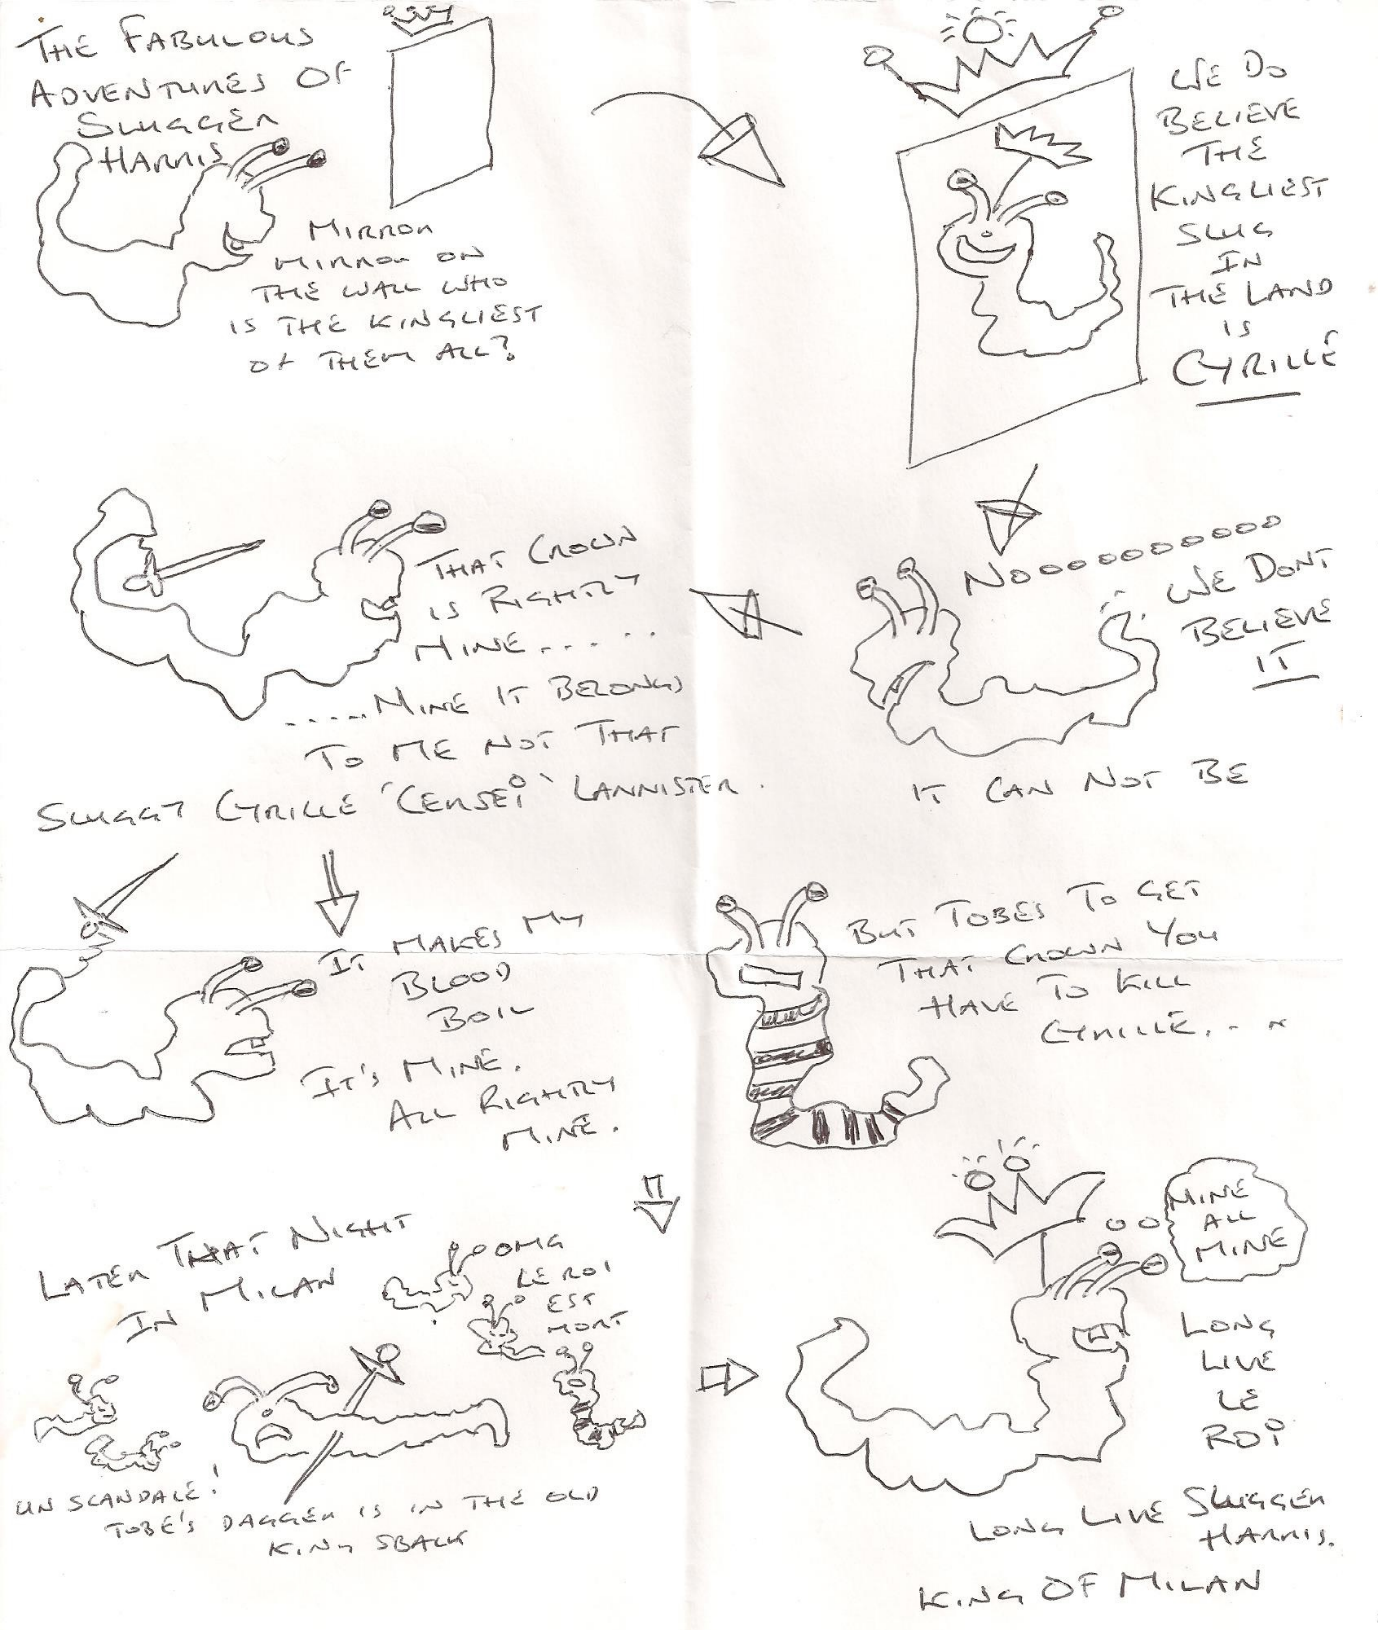 THE FABULOUS
ADVENTURES OF
SLUGGER
HARRIS
MIRROR
MIRROR ON
THE WALL WHO
IS THE KINGLIEST
OF THEM ALL?
WE DO
BELIEVE
THE
KINGLIEST
SLUG
IN
THE LAND
IS
CYRILLE
NOOOOOOOOOOO
WE DONT
BELIEVE
IT
IT CAN NOT BE
THAT CROWN
IS RIGHTLY
MINE.....
.....MINE IT BELONGS
TO ME NOT THAT
SLUGGY CYRILLE 'CERSEI' LANNISTER.
IT MAKES MY
BLOOD
BOIL
IT'S MINE.
ALL RIGHTLY
MINE.
BUT TOBES TO GET
THAT CROWN YOU
HAVE TO KILL
CYRILLE...
LATER THAT NIGHT
IN MILAN
OMG
LE ROI
EST
MORT
UN SCANDALE!
TOBE'S DAGGER IS IN THE OLD
KING SBACK
MINE
ALL
MINE
LONG
LIVE
LE
ROI
LONG LIVE SLUGGER
HARRIS.
KING OF MILAN